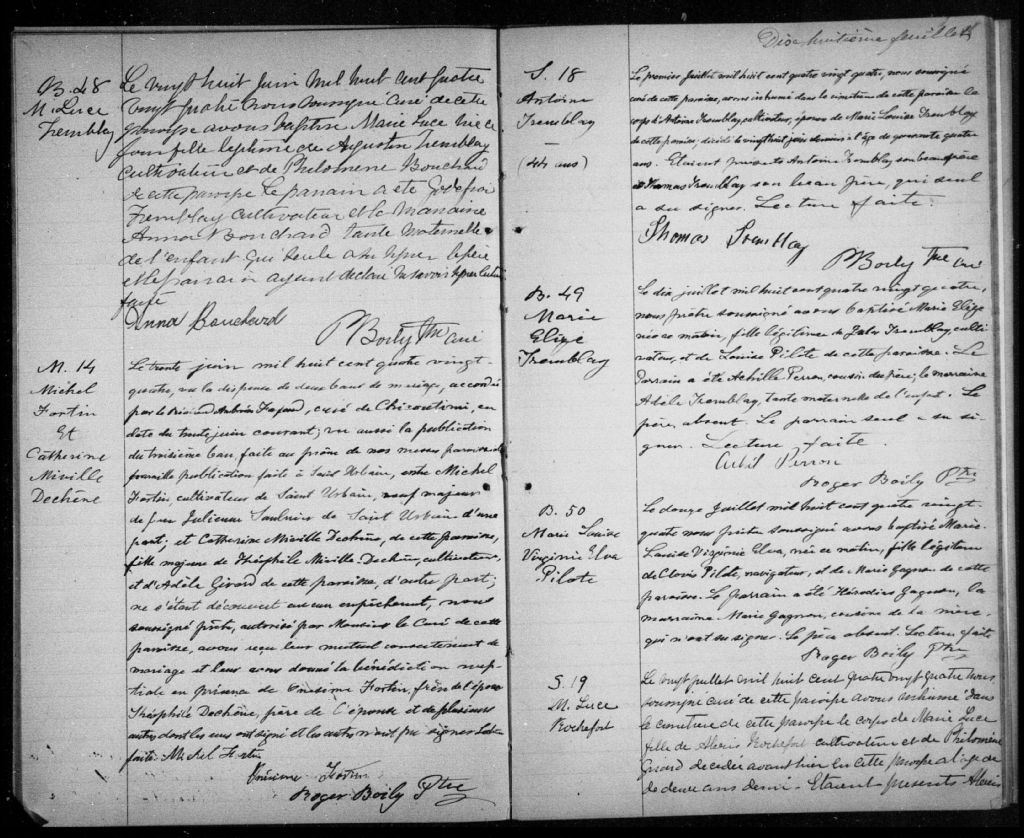 B. 48
M. Luce
Tremblay
Le vingt huit juin mil huit cent quatre
vingt quatre nous soussigné curé de cette
paroisse avons baptisé Marie Luce née ce
jour fille légitime de Augustin Tremblay
cultivateur et de Philomène Bouchard
de cette paroisse Le parrain a été
Tremblay cultivateur et la marraine
Anna Bouchard tante maternelle
de l'enfant qui seule a su signer le père
et le parrain ayant déclaré ne savoir signer Lecture
faite
Anna Bouchard
PBoily Ptre curé
M. 14
Michel
Fortin
Et
Catherine
Miville
Dechêne
Le trente juin mil huit cent quatre vingt-
quatre, vu la dispense de deux bans de mariage, accordée
par le Révérend, curé de Chicoutimi, en
date du trente juin courant; vu aussi la publication
du troisième ban, faite au prône de nos messes paroissiales
pareille publication faite à Saint Urbain, entre Michel
Fortin, cultivateur de Saint Urbain, veuf majeur
de feu Julienne Saulnier de Saint Urbain d'une
part; et Catherine Miville Dechêne, de cette paroisse,
fille majeure de Théophile Miville-Dechêne, cultivateur,
et d'Adèle Girard de cette paroisse, d'autre part;
ne s'étant découvert aucun empêchement, nous
soussigné prêtre, autorisé par Monsieur le Curé de cette
paroisse, avons reçu leur mutuel consentement de
mariage et leur avons donné la bénédiction nup-
tiale en présence de Onésime Fortin, frère de l'époux
Théophile Dechêne, père de l'épouse et de plusieurs
autres dont les uns ont signé et les autres n'ont pu signer Lecture
faite. Michel Fortin
Onésime Fortin
Roger Boily Ptre
Dix huitième feuillet
S. 18
Antoine
Tremblay
—
(44 ans)
Le premier Juillet mil huit cent quatre vingt quatre, nous soussigné
curé de cette paroisse, avons inhumé dans le cimetière de cette paroisse le
corps d'Antoine Tremblay, cultivateur, époux de Marie Louise Tremblay,
de cette paroisse, décédé le vingt huit juin dernier à l'âge de quarante quatre
ans. Etaient présents Antoine Tremblay son beau père
et Thomas Tremblay son beau frère, qui seul
a su signer. Lecture faite.
Thomas Tremblay
PBoily Ptre curé
B. 49
Marie
Elize
Tremblay
Le dix juillet mil huit cent quatre vingt quatre,
nous prêtre soussigné avons baptisé Marie Elize
née ce matin, fille légitime de Jules Tremblay, culti-
vateur, et de Louise Pilote de cette paroisse. Le
Parrain a été Achille Perron, cousin du père; la marraine
Adèle Tremblay, tante maternelle de l'enfant. Le
père, absent. Le parrain seul a su si-
gner. Lecture faite.
Perron
Roger Boily Ptre
B. 50
Marie Louise
Virginie Elva
Pilote
Le douze Juillet mil huit cent quatre vingt-
quatre nous prêtre soussigné avons baptisé Marie
Louise Virginie Elva, née ce matin, fille légitime
de Clovis Pilote, navigateur, et de Marie Gagnon de cette
paroisse. Le parrain a été Gagnon, la
marraine Marie Gagnon, cousine de la mère
qui n'ont su signer. Le père absent. Lecture faite
Roger Boily Ptre
S. 19
M. Luce
Rochefort
Le vingt juillet mil huit cent quatre vingt quatre nous
soussigné curé de cette paroisse avons inhumé dans
le cimetière de cette paroisse le corps de Marie Luce
fille de Alexis Rochefort cultivateur et de Philomène
Girard décédée avant hier en cette paroisse à l'age de
de deux ans demi. Etaient presents Alexis